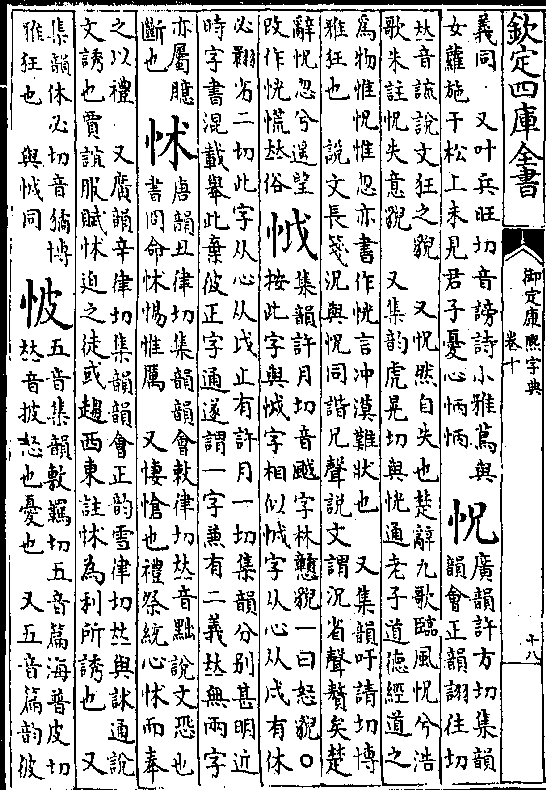 欽定四庫全書
御定康熙字典
卷十
十八
義同 又叶兵旺切音謗詩小雅蔦與
女蘿施于松上未見君子憂心怲怲
怳
廣韻許方切集韻
韻會正韻詡往切
𠀤音謊說文狂之貌 又怳然自失也楚辭九歌臨風怳兮浩
歌朱註怳失意貌 又集韵虎晃切與恍通老子道德經道之
為物惟怳惟忽亦書作恍言冲漠難狀也 又集韻吁請切博
雅狂也 說文長箋況與怳同諧兄聲說文謂況省聲贅矣楚
辭怳忽兮遥望
改作恍慌𠀤俗
𢗾
集韻許月切音䬂字林戇貌一曰怒貌○
按此字與怴字相似怴字从心从戊有休
必翾劣二切此字从心从戉止有許月一切集韻分別甚明近
時字書混載舉此棄彼正字通遂謂一字兼有二義𠀤無兩字
亦屬臆
斷也
怵
唐韻丑律切集韻韻會敕律切𠀤音黜說文恐也
書冏命怵惕惟厲 又悽愴也禮祭統心怵而奉
之以禮 又廣韻辛律切集韻韻會正韵雪律切𠀤與訹通說
文誘也賈誼服賦怵迫之徒或趨西東註怵為利所誘也 又
集韻休必切音獝博
雅狂也 與怴同
怶
五音集韻敷羈切五音篇海普皮切
𠀤音披恐也憂也 又五音篇韵彼